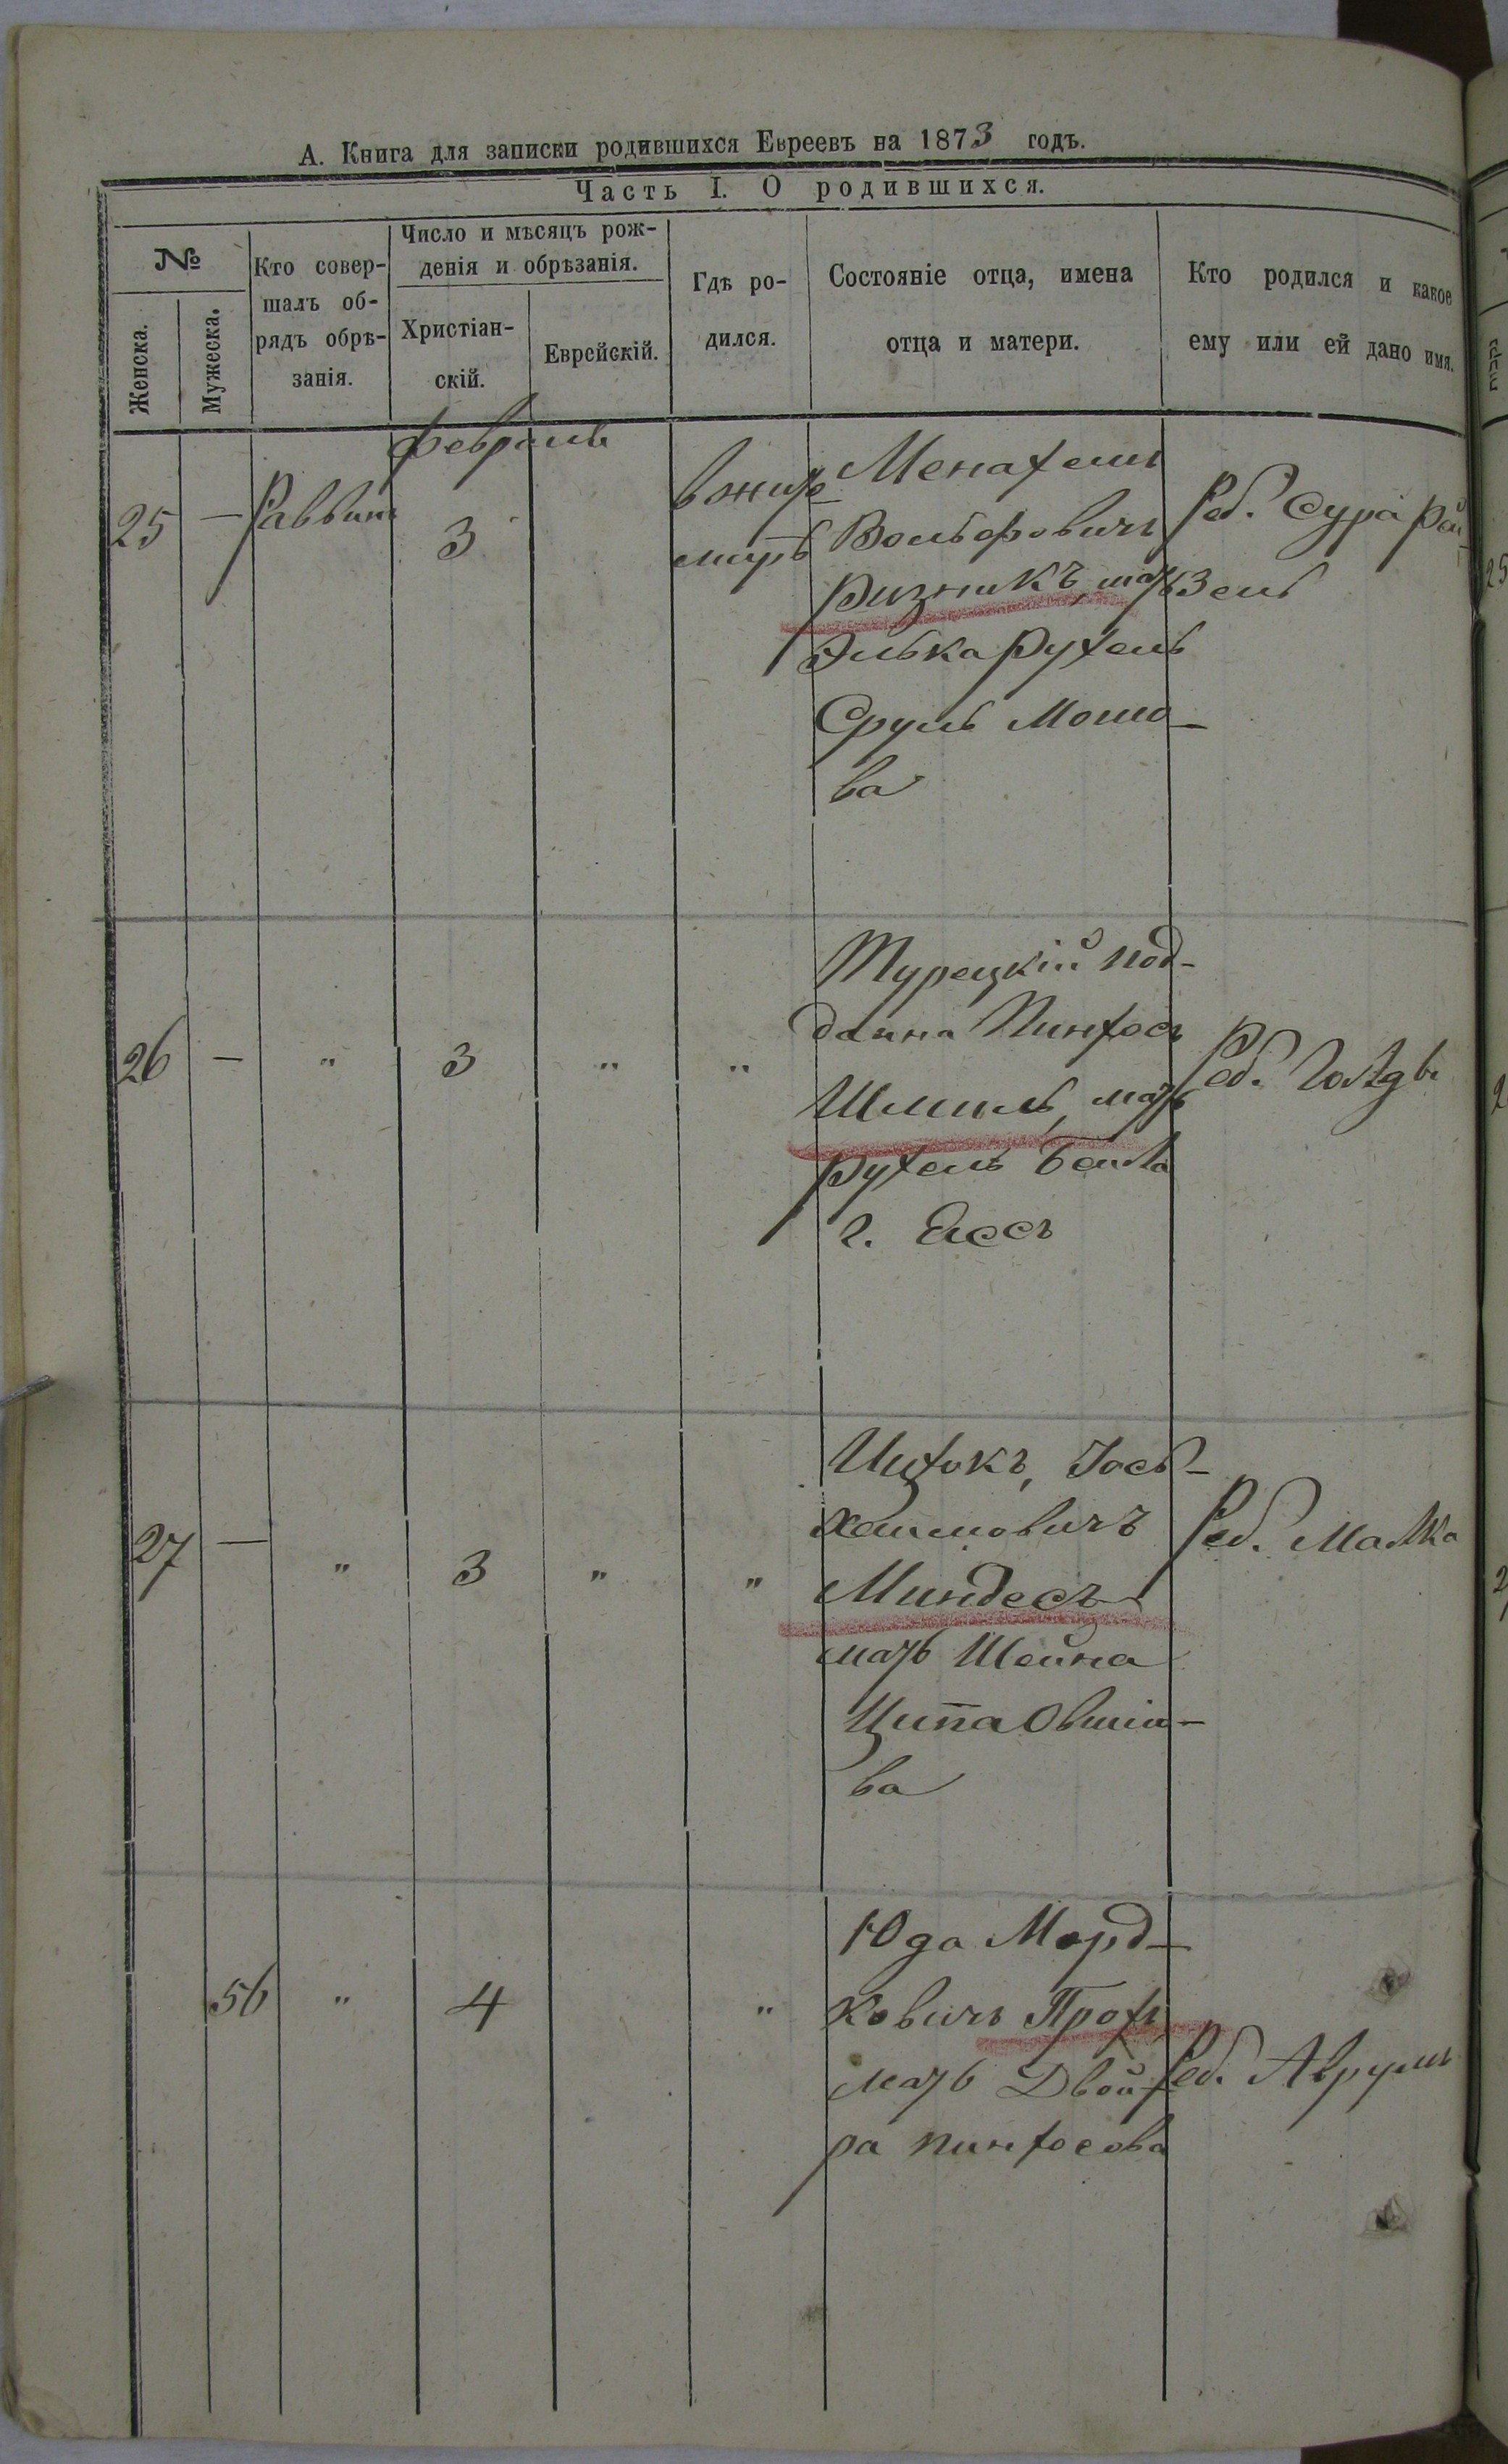 А. Книга для записки родившихся Евреевъ на 1873 годъ.
Часть I. О родившихся.
№
Женска.
Мужеска.
Кто совер-
шалъ об-
рядъ обрѣ-
занія.
Число и мѣсяцъ рож-
денія и обрѣзанія.
Христіан-
скій.
Еврейскій.
Гдѣ ро-
дился.
Состояніе отца, имена
отца и матери.
Кто родился и какое
ему или ей дано имя.
февраль
25 — Раввинъ 3
Менахемъ
Вольфовичъ
Ризникъ, мать
Элька Рухель
Сруль Мошо-
ва
Реб. Сура Рай-
зель
26 — " 3 " "
Турецкій под-
данна Пинхосъ
Шмиль, мать
Рухель Бейла
г. Яссъ
Реб. Голда
27 — " 3 " "
Ицхокъ, Іось-
Хаимовичъ
Миндесъ
мать Шейна
Ципа Овшіо-
ва
Реб. Малка
56 " 4 "
Юда Морд-
ковичъ Прохъ,
мать Двой-
ра Пинхосова
Реб. Аврумъ